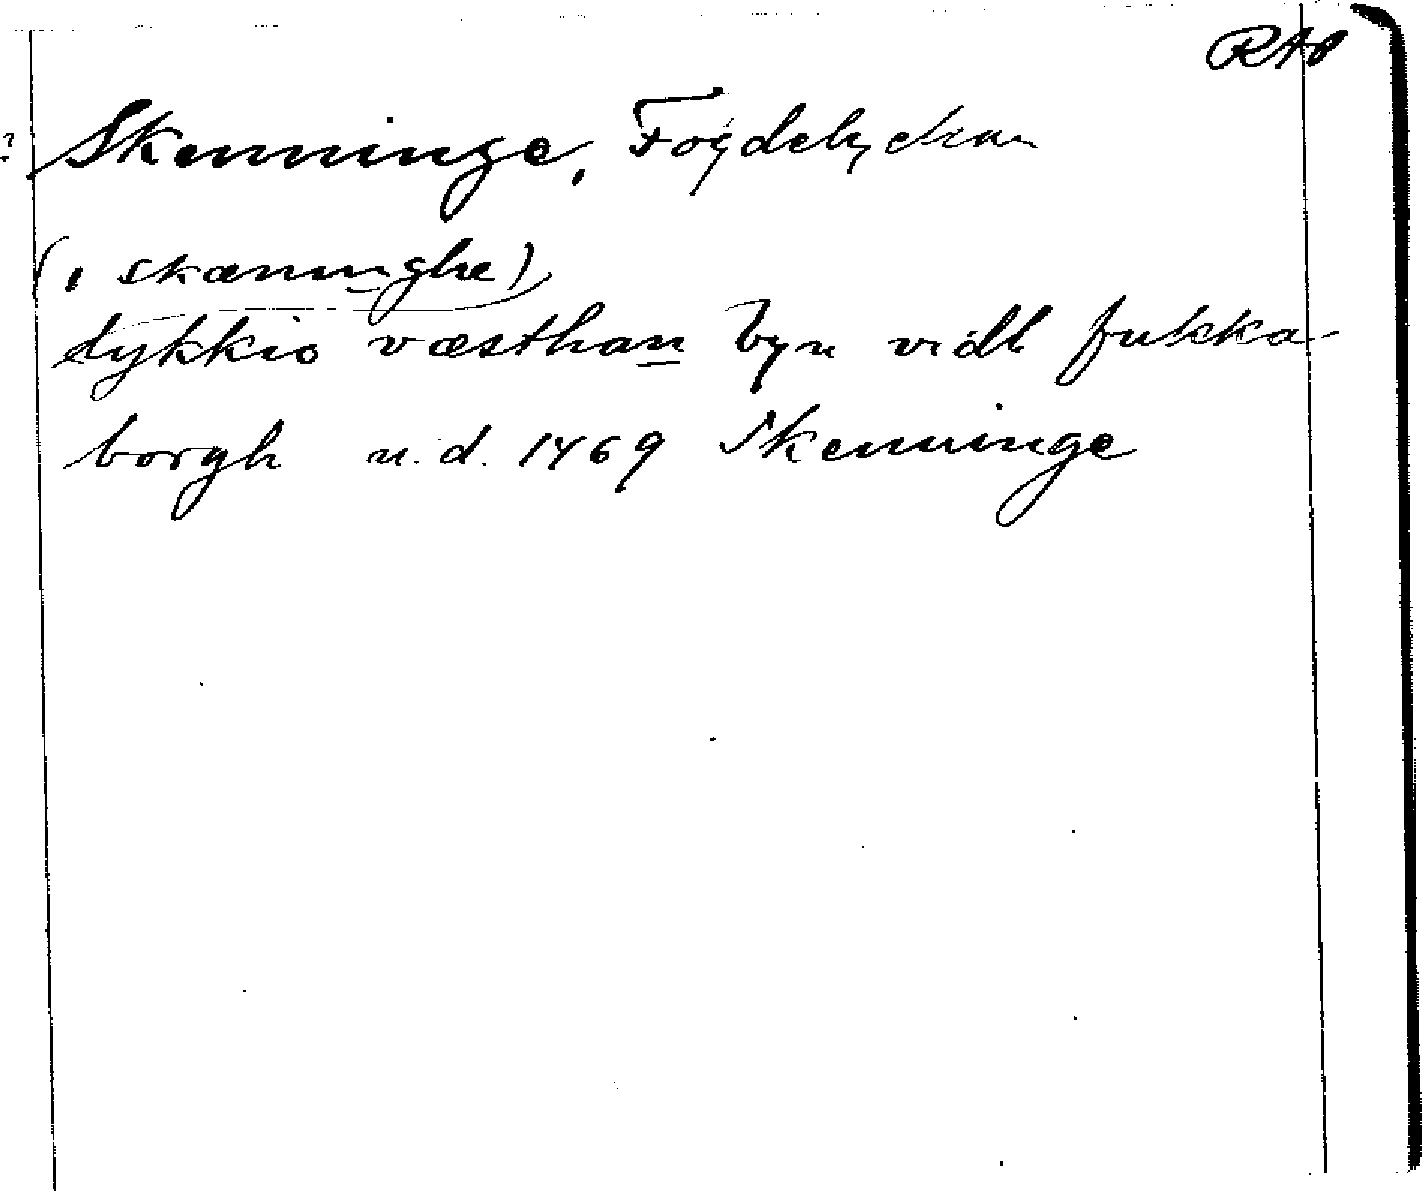 RAP
? Skenninge, Fogdelyckan
(i skænninghe)
lykkio væsthan byn vidh fukka-
borgh u.d. 1469 Skenninge